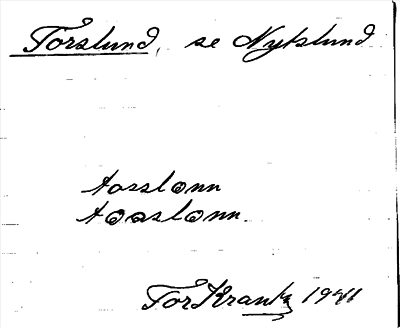 Torslund, se Nytslund
torslonn
toaslonn
Tor Krantz 1941